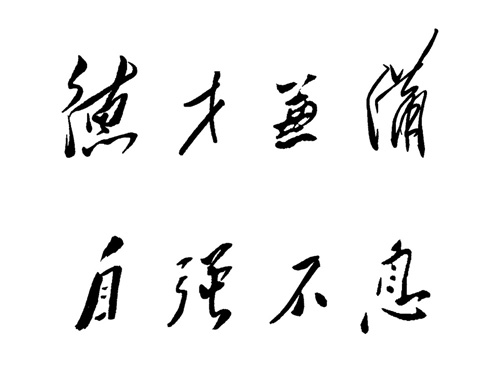 德才兼備
自强不息